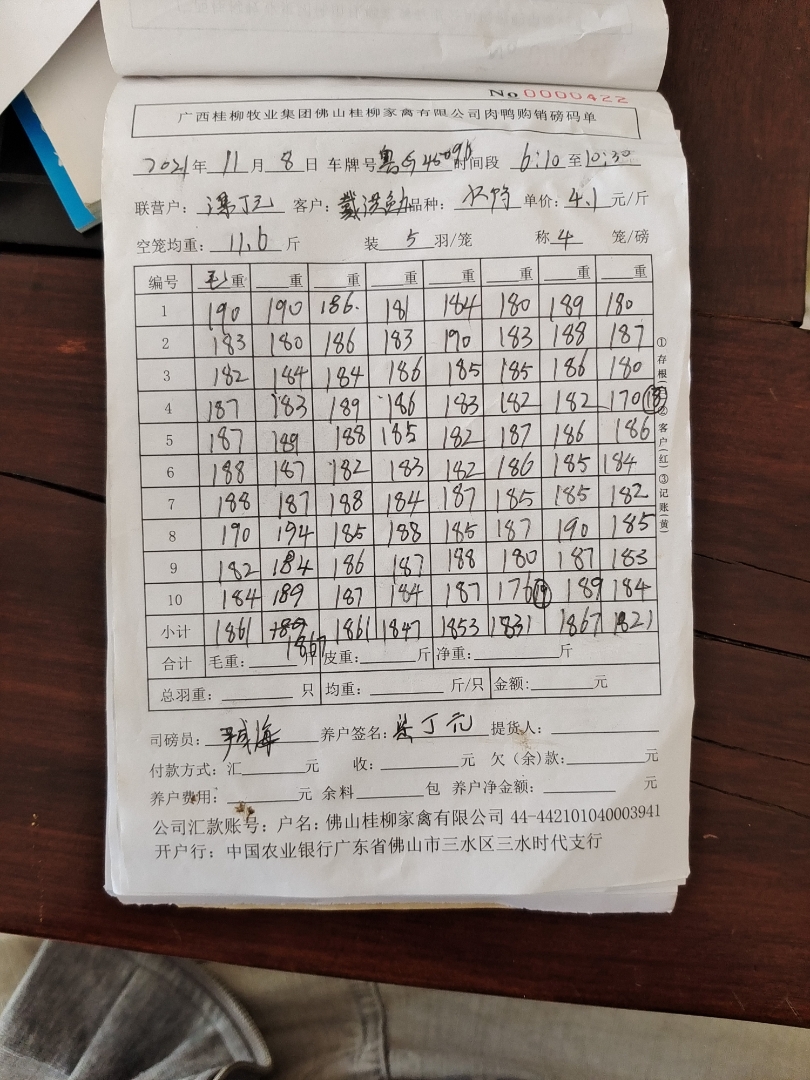 No 0000422
广西桂柳牧业集团佛山桂柳家禽有限公司肉鸭购销磅码单
2021年 11月 8日 车牌号 时间段 6:10至10:30
联营户: 客户: 品种: 单价: 4.1 元/斤
空笼均重: 11.6 斤 装 5 羽/笼 称 4 笼/磅
编号 毛重 重 重 重 重 重 重 重
1 190 190 186 181 184 180 189 180
2 183 180 186 183 190 183 188 187
3 182 184 184 186 185 185 186 180
4 187 183 189 186 183 182 182 170
5 187 189 188 185 182 187 186 186
6 188 187 182 183 182 186 185 184
7 188 187 188 184 187 185 185 182
8 190 194 185 188 185 187 190 185
9 182 184 186 187 188 180 187 183
10 184 189 187 184 187 176 19 189 184
小计 1861 1867 1861 1847 1853 1831 1867 1821
合计 毛重: 斤 皮重: 斤 净重: 斤
总羽重: 只 均重: 斤/只 金额: 元
司磅员: 养户签名: 提货人:
付款方式: 汇 元 收: 元 欠(余)款: 元
养户费用: 元 余料 包 养户净金额: 元
公司汇款账号: 户名: 佛山桂柳家禽有限公司 44-442101040003941
开户行: 中国农业银行广东省佛山市三水区三水时代支行
①存根( ②客户(红)③记账(黄)